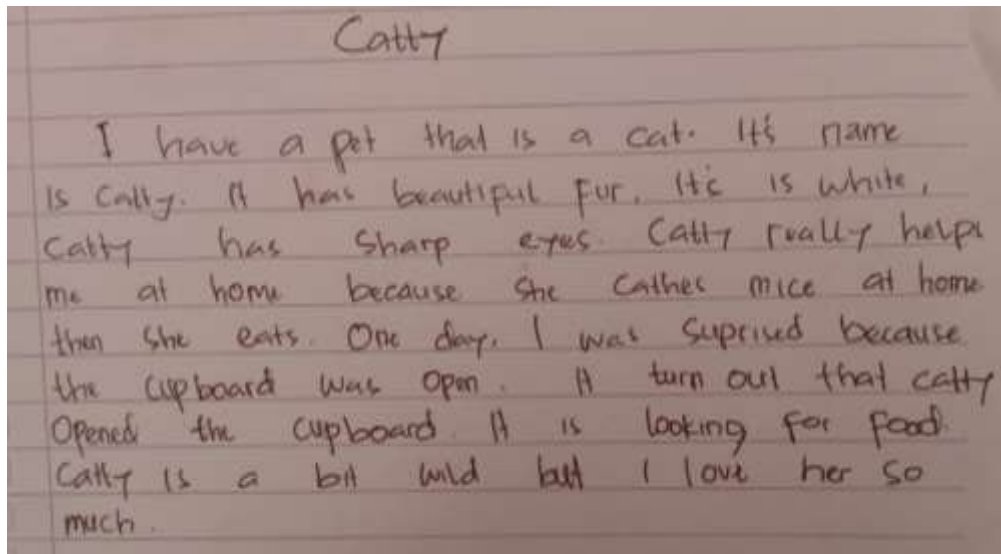 Catty
I have a pet that is a cat. It's name
is Catty. It has beautiful fur. It's is white,
Catty has sharp eyes. Catty really helps
me at home because she cathes mice at home
then she eats. One day, I was suprised because
the cupboard was open. It turn out that catty
Opened the cupboard. It is looking for food.
Catty is a bit wild butt I love her so
much.